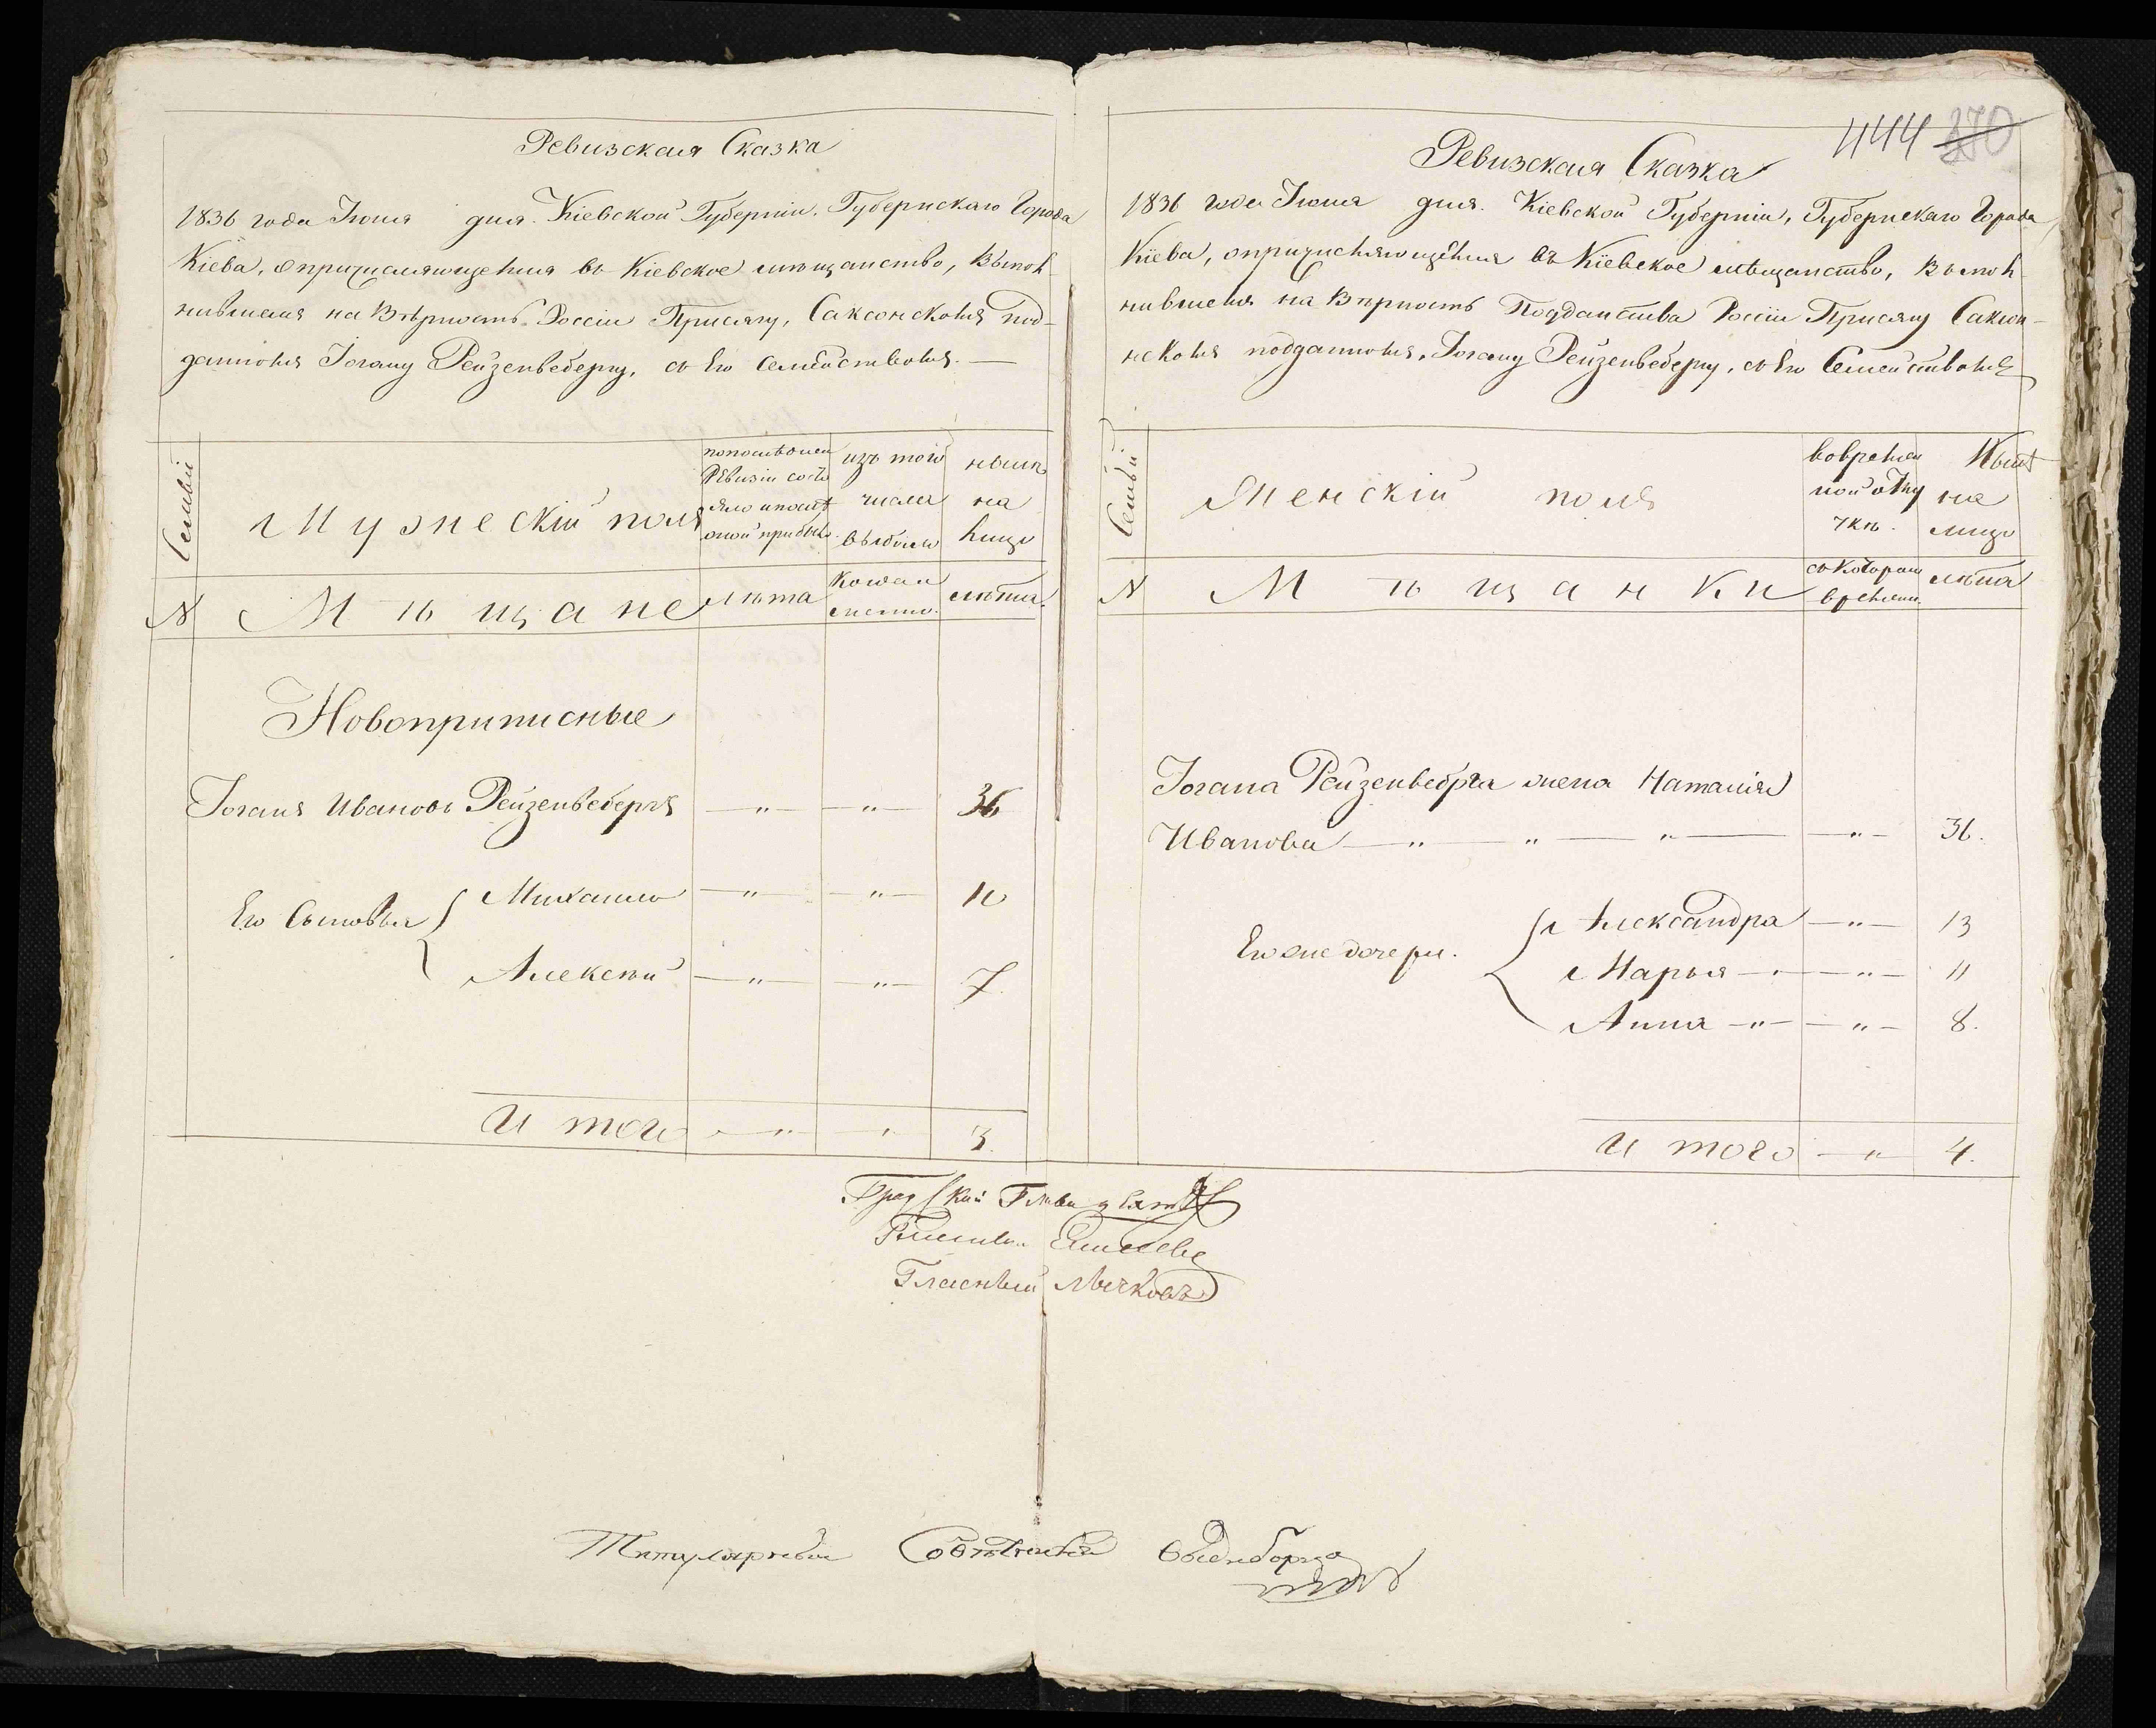 Ревизская Сказка
1836 года Июня дня. Кіевской Губерніи, Губернскаго Города
Кіева, опричисляющемся въ Кіевское мѣщанство, Выпол
нившемъ на Вѣрность Россіи Присягу, Саксонскомъ под-
данномъ Іогану Рейзенвебергу, съ Его Семействомъ. —
Семьи
Мужескій полъ
по послѣдней
Ревизіи состо
яло и послѣ
оной прибыло
изъ того
числа
выбыло
нынѣ
на
лицо
№
Мѣщане
лѣта
Когда
именно.
лѣта.
Новоприписные
Іоганъ Ивановъ Рейзенвебергъ — " — — " — 36
Его Сыновья
Михайло — " — — " — 10
Алексѣй — " — — " — 7.
Итого — " — — " — 3.
444 370
Ревизская Сказка
1836 года Июня дня. Кіевской Губерніи, Губернскаго Города
Кіева, опричисляющемся въ Кіевское мѣщанство, Выпол
нившемъ на Вѣрность Подданства Россіи Присягу Саксон-
скомъ подданномъ, Іогану Рейзенвебергу, съ Его Семействомъ
Семьи
Женскій полъ
во времен
ной отлу
чкѣ.
Нынѣ
на
лицо
№
Мѣщанки
съ котораго
времени.
лѣта
Іогана Рейзенвебрга жена Наталія
Иванова — " — " — " — — " — 36.
Его же дочери.
Александра — " — 13
Марья — " — — " — 11
Анна — " — — " — 8.
Итого — " — 4.
Градскій Глава
Гласный
Титулярный Совѣтникъ